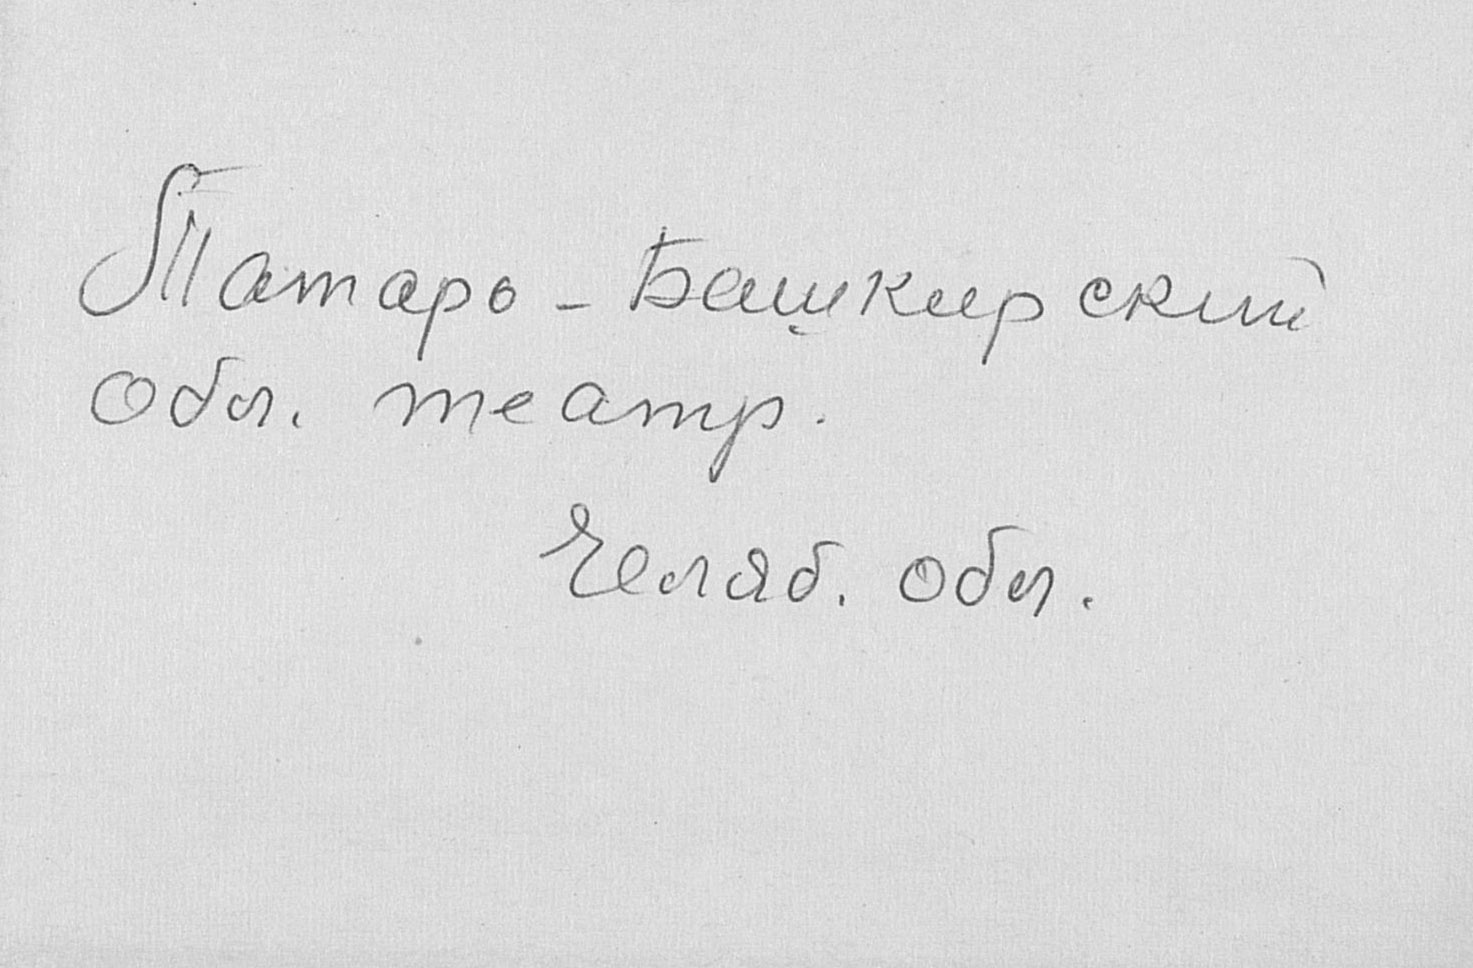 Татаро - Башкирский
обл. театр.
Челяб. обл.